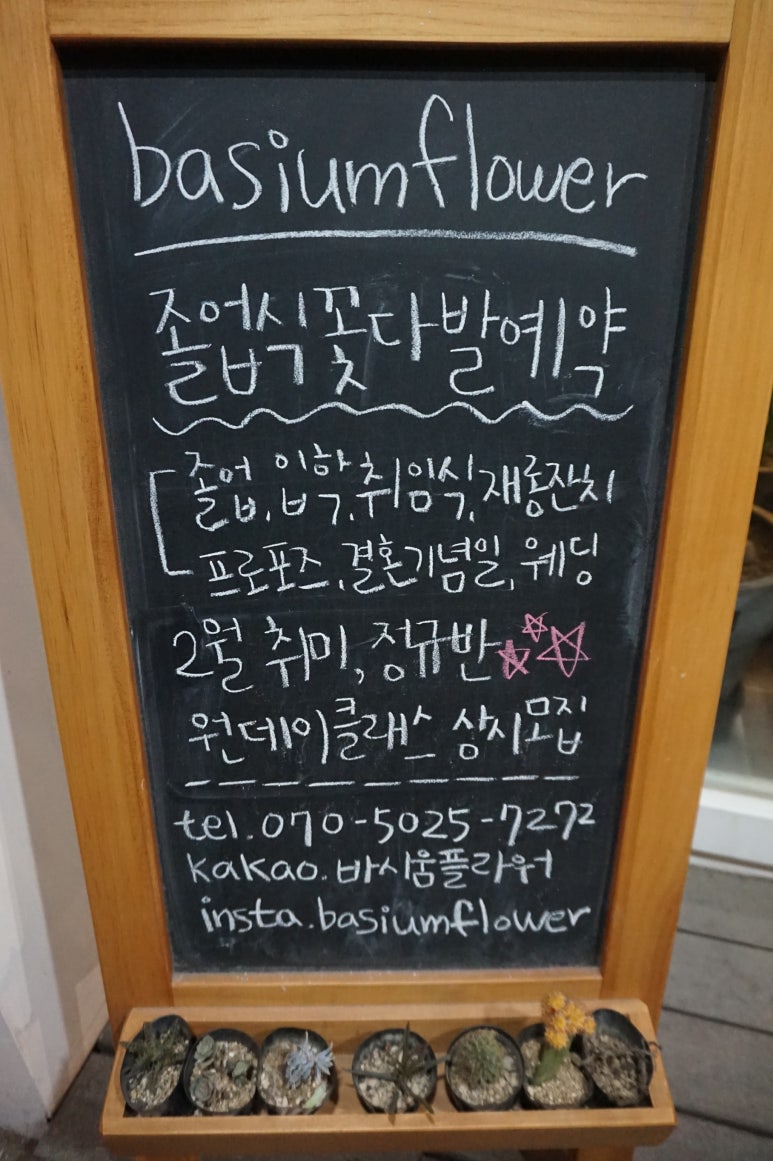 basiumflower
졸업식꽃다발예약
졸업,입학,취임식,재롱잔치
프로포즈,결혼기념일,웨딩
2월 취미,정규반
원데이클래스 상시모집
tel.070-5025-7272
kakao.바시움플라워
insta.basiumflower